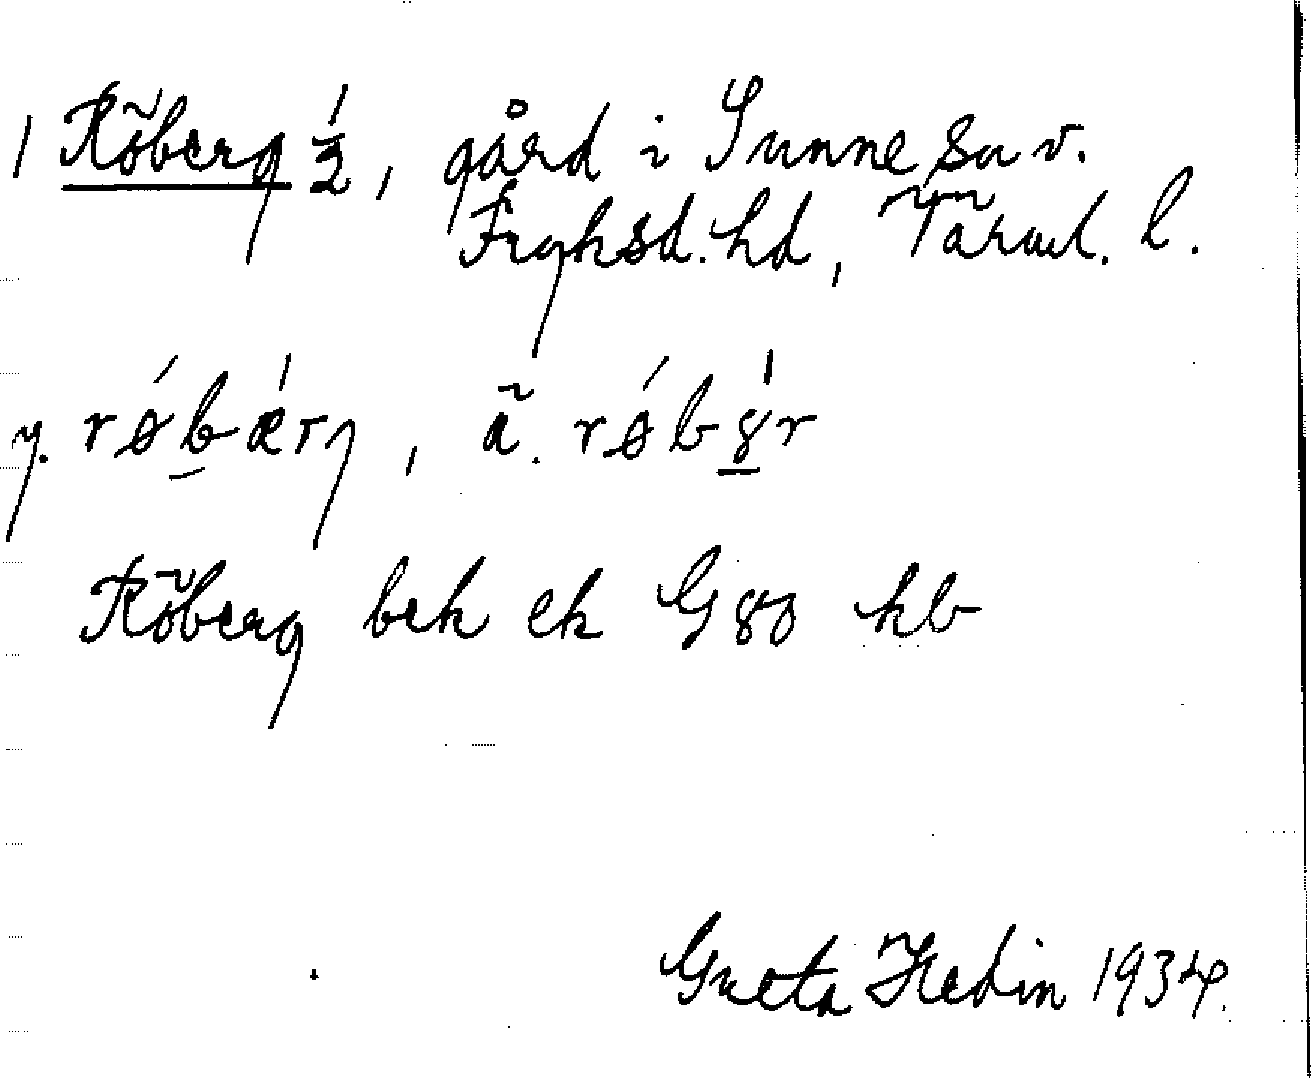 1 Röberg 1/2, gård i Sunne sn v.
Fryksd. hd, Värml. l.
y. røbærj, ä. røbər
Röberg bek ek G 80 kb
Greta Hedin 1934.